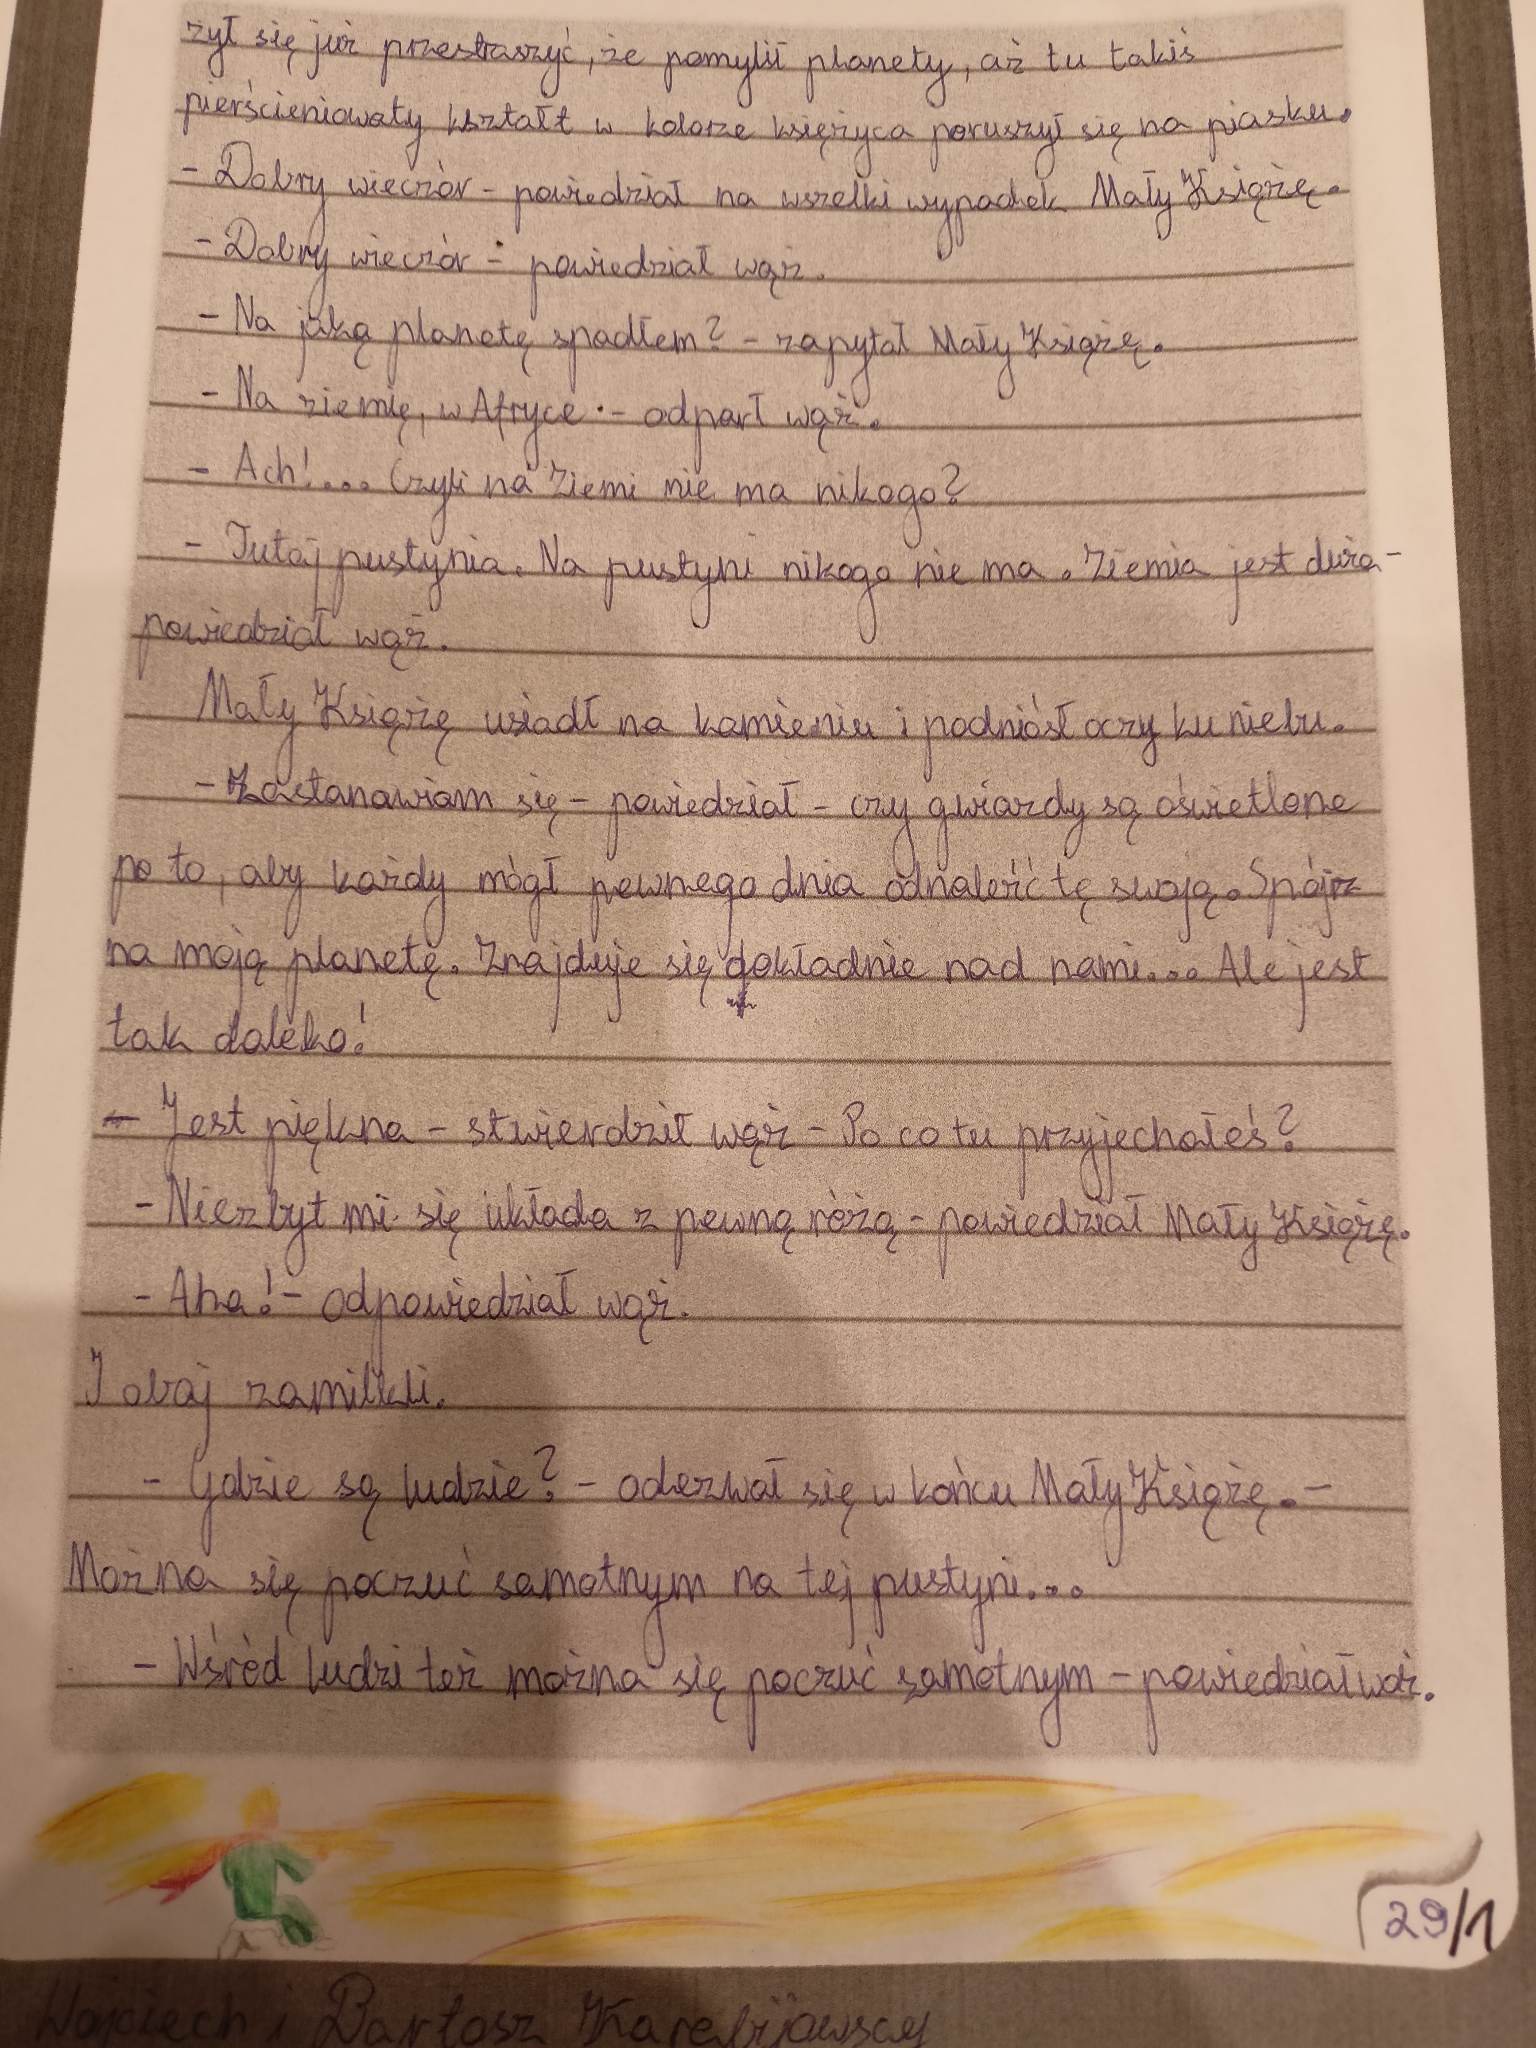 żył się już przestraszyć, że pomylił planety, aż tu takiś
pierścieniowaty kształt w kolorze księżyca poruszył się na piasku.
- Dobry wieczór - powiedział na wszelki wypadek Mały Książę.
- Dobry wieczór - powiedział wąż.
- Na jaką planetę spadłem? - zapytał Mały Książę.
- Na ziemię, w Afryce - odparł wąż.
- Ach!... Czyli na Ziemi nie ma nikogo?
- Tutaj pustynia. Na pustyni nikogo nie ma. Ziemia jest duża -
powiedział wąż.
Mały Książę usiadł na kamieniu i podniósł oczy ku niebu.
- Zastanawiam się - powiedział - czy gwiazdy są oświetlone
po to, aby każdy mógł pewnego dnia odnaleźć tę swoją. Spójrz
na moją planetę. Znajduje się dokładnie nad nami... Ale jest
tak daleko!
- Jest piękna - stwierdził wąż - Po co tu przyjechałeś?
- Niezbyt mi się układa z pewną różą - powiedział Mały Książę.
- Aha! - odpowiedział wąż.
I obaj zamilkli.
- Gdzie są ludzie? - odezwał się w końcu Mały Książę. -
Można się poczuć samotnym na tej pustyni...
- Wśród ludzi też można się poczuć samotnym - powiedział wąż.
29/1
Wojciech i Bartosz